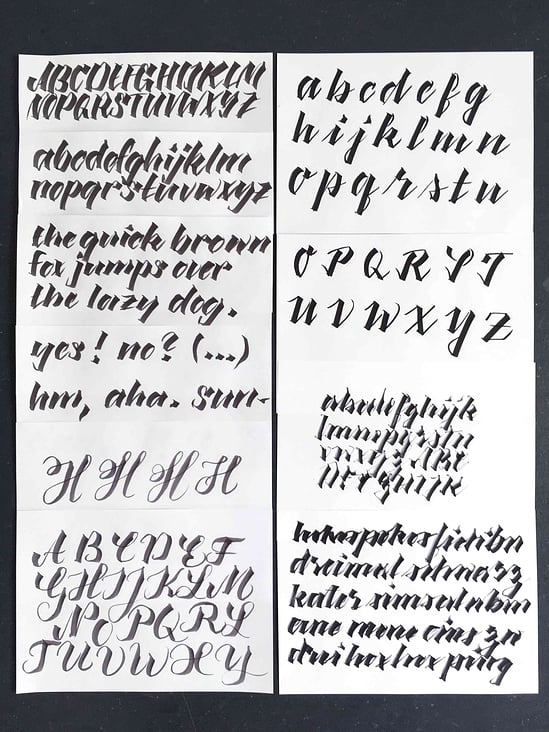 ABCDEFGHIJKLM
NOPQRSTUVWXYZ
abcdefghijklm
nopqrstuvwxyz
the quick brown
fox jumps over
the lazy dog.
yes! no? (...)
hm, aha. sun-
H H H H
A B C D E F
G H I J K L M
N O P Q R S
T U V W X Y
a b c d e f g
h i j k l m n
o p q r s t u
O P Q R S T
U V W X Y Z
abcdefghijk
lmnopqrstu
hokuspokus fidibu
dreimal schwarz
kater simsalabim
ene mene eins zn
drei hex hex